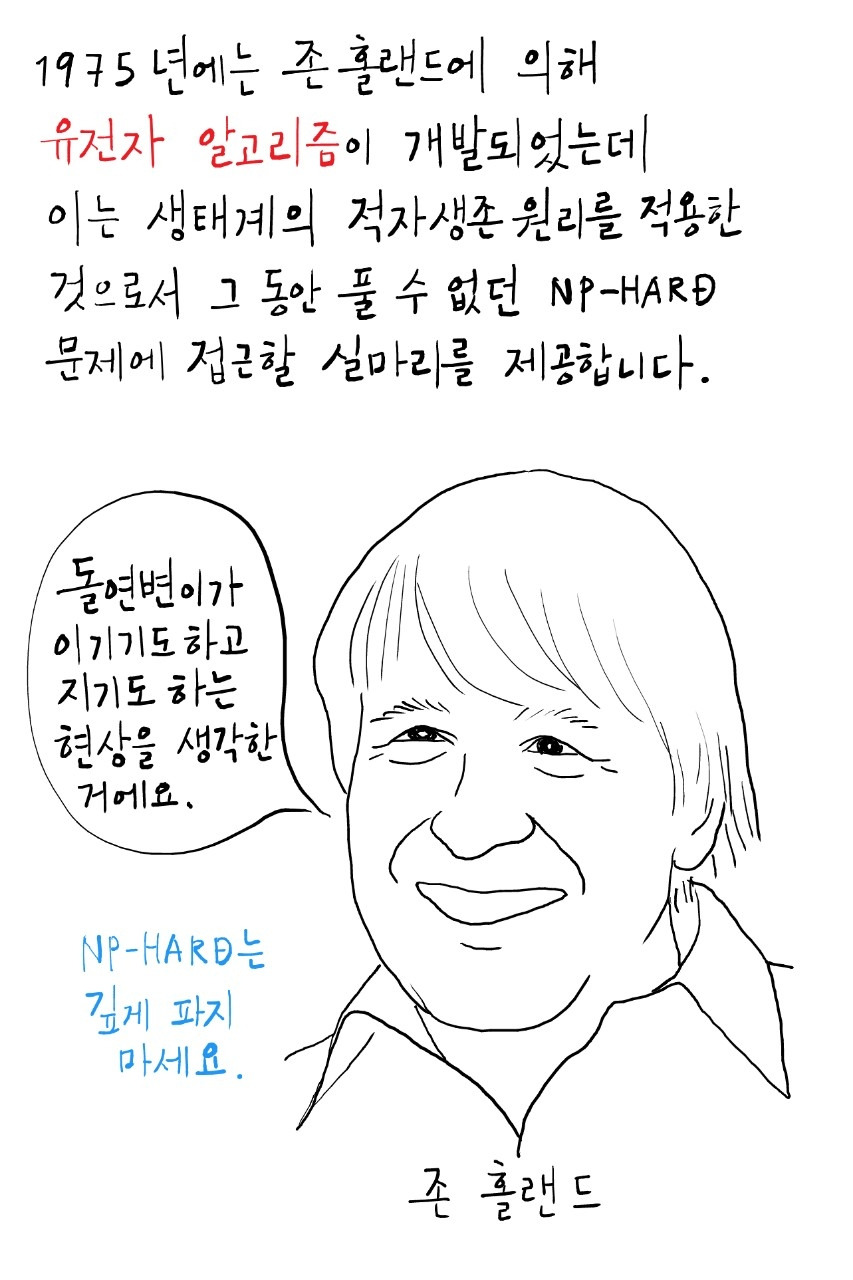 1975년에는 존 홀랜드에 의해
유전자 알고리즘이 개발되었는데
이는 생태계의 적자생존 원리를 적용한
것으로서 그 동안 풀 수 없던 NP-HARD
문제에 접근할 실마리를 제공합니다.
돌연변이가
이기기도 하고
지기도 하는
현상을 생각한
거에요.
NP-HARD는
깊게 파지
마세요.
존 홀랜드